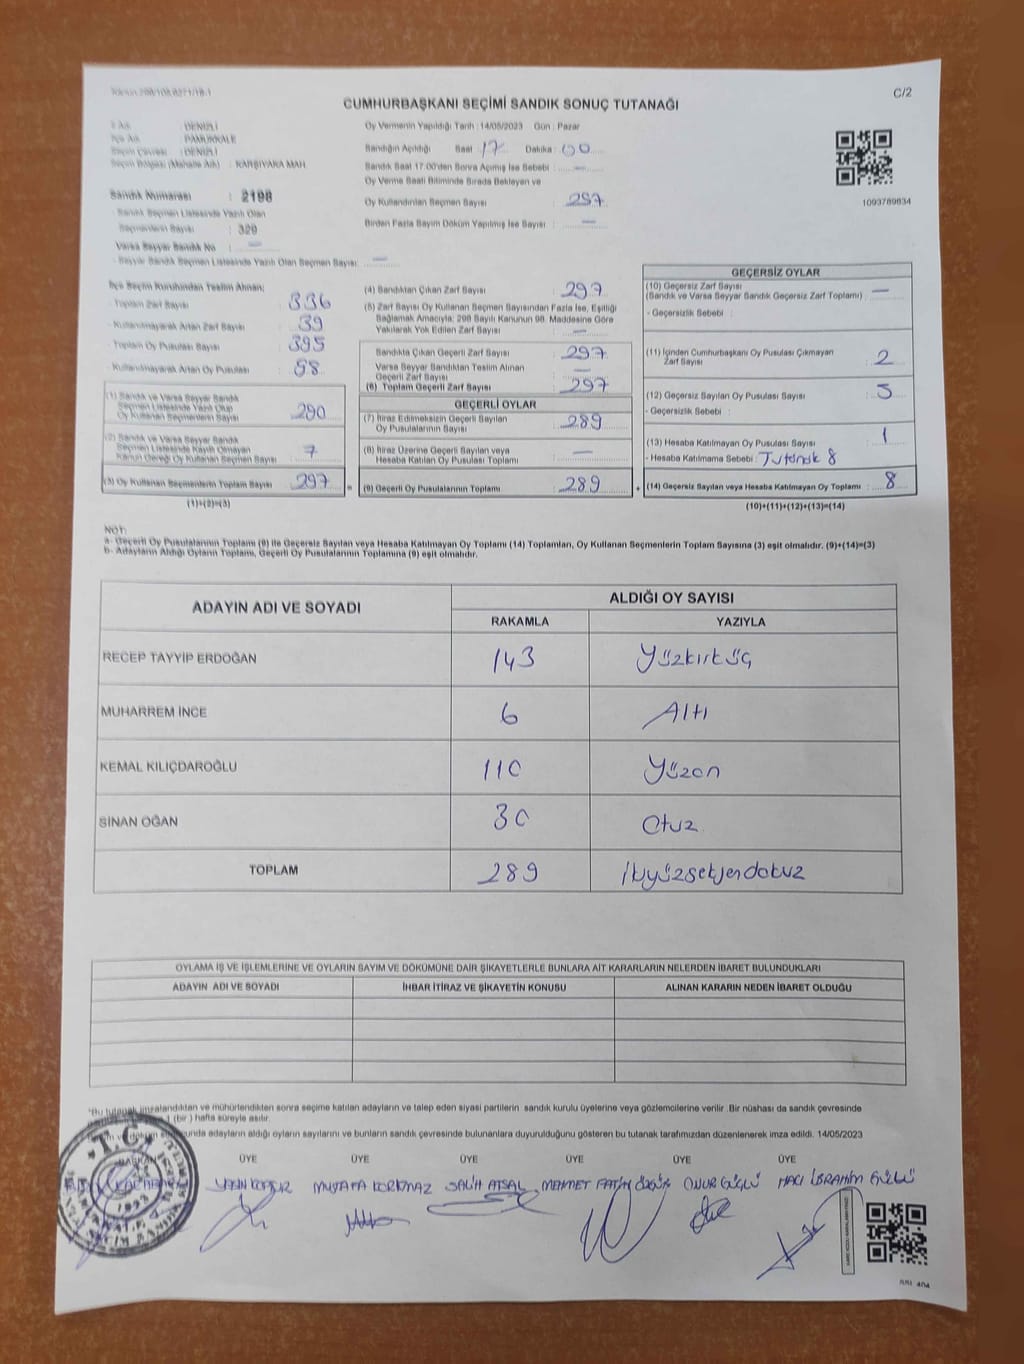 C/2
CUMHURBAŞKANI SEÇİMİ SANDIK SONUÇ TUTANAĞI
İl Adı : DENİZLİ
İlçe Adı : PAMUKKALE
Seçim Çevresi : DENİZLİ
Seçim Bölgesi (Mahalle Adı) : KARŞIYAKA MAH.
Sandık Numarası : 2198
- Sandık Seçmen Listesinde Yazılı Olan
Seçmenlerin Sayısı : 329
Varsa Seyyar Sandık No : —
- Seyyar Sandık Seçmen Listesinde Yazılı Olan Seçmen Sayısı: —
Oy Vermenin Yapıldığı Tarih : 14/05/2023 Gün : Pazar
Sandığın Açıldığı Saat : 17 Dakika : 00
Sandık Saat 17:00'den Sonra Açımış İse Sebebi : —
Oy Verme Saati Bitiminde Sırada Bekleyen ve
Oy Kullandırılan Seçmen Sayısı : 297
Birden Fazla Sayım Döküm Yapılmış İse Sayısı : —
1093789834
İlçe Seçim Kurulundan Teslim Alınan;
- Toplam Zarf Sayısı : 336
- Kullanılmayarak Artan Zarf Sayısı : 39
- Toplam Oy Pusulası Sayısı : 395
- Kullanılmayarak Artan Oy Pusulası : 98
(1) Sandık ve Varsa Seyyar Sandık
Seçmen Listesinde Yazılı Olup
Oy Kullanan Seçmenlerin Sayısı : 290
(2) Sandık ve Varsa Seyyar Sandık
Seçmen Listesinde Kayıtlı Olmayan
Kanun Gereği Oy Kullanan Seçmen Sayısı : 7
(3) Oy Kullanan Seçmenlerin Toplam Sayısı : 297
(1)+(2)=(3)
(4) Sandıktan Çıkan Zarf Sayısı : 297
(5) Zarf Sayısı Oy Kullanan Seçmen Sayısından Fazla İse, Eşitliği
Sağlamak Amacıyla; 298 Sayılı Kanunun 98. Maddesine Göre
Yakılarak Yok Edilen Zarf Sayısı : —
Sandıkta Çıkan Geçerli Zarf Sayısı : 297
Varsa Seyyar Sandıktan Teslim Alınan
Geçerli Zarf Sayısı : —
(6) Toplam Geçerli Zarf Sayısı : 297
GEÇERLİ OYLAR
(7) İtiraz Edilmeksizin Geçerli Sayılan
Oy Pusulalarının Sayısı : 289
(8) İtiraz Üzerine Geçerli Sayılan veya
Hesaba Katılan Oy Pusulası Toplamı : —
(9) Geçerli Oy Pusulalarının Toplamı : 289
GEÇERSİZ OYLAR
(10) Geçersiz Zarf Sayısı
(Sandık ve Varsa Seyyar Sandık Geçersiz Zarf Toplamı) : —
- Geçersizlik Sebebi :
(11) İçinden Cumhurbaşkanı Oy Pusulası Çıkmayan
Zarf Sayısı : 2
(12) Geçersiz Sayılan Oy Pusulası Sayısı : 5
- Geçersizlik Sebebi :
(13) Hesaba Katılmayan Oy Pusulası Sayısı : 1
- Hesaba Katılmama Sebebi : Tutanak 8
(14) Geçersiz Sayılan veya Hesaba Katılmayan Oy Toplamı : 8
(10)+(11)+(12)+(13)=(14)
NOT:
a- Geçerli Oy Pusulalarının Toplamı (9) ile Geçersiz Sayılan veya Hesaba Katılmayan Oy Toplamı (14) Toplamları, Oy Kullanan Seçmenlerin Toplam Sayısına (3) eşit olmalıdır. (9)+(14)=(3)
b- Adayların Aldığı Oyların Toplamı, Geçerli Oy Pusulalarının Toplamına (9) eşit olmalıdır.
ADAYIN ADI VE SOYADI ALDIĞI OY SAYISI
RAKAMLA YAZIYLA
RECEP TAYYİP ERDOĞAN 143 Yüzkırküç
MUHARREM İNCE 6 Altı
KEMAL KILIÇDAROĞLU 110 Yüzon
SİNAN OĞAN 30 Otuz
TOPLAM 289 ikiyüzseksendokuz
OYLAMA İŞ VE İŞLEMLERİNE VE OYLARIN SAYIM VE DÖKÜMÜNE DAİR ŞİKAYETLERLE BUNLARA AİT KARARLARIN NELERDEN İBARET BULUNDUKLARI
ADAYIN ADI VE SOYADI İHBAR İTİRAZ VE ŞİKAYETİN KONUSU ALINAN KARARIN NEDEN İBARET OLDUĞU
*Bu tutanak imzalandıktan ve mühürlendikten sonra seçime katılan adayların ve talep eden siyasi partilerin sandık kurulu üyelerine veya gözlemcilerine verilir. Bir nüshası da sandık çevresinde
(bir) hafta süreyle asılır.
adayların aldığı oyların sayılarını ve bunların sandık çevresinde bulunanlara duyurulduğunu gösteren bu tutanak tarafımızdan düzenlenerek imza edildi. 14/05/2023
BAŞKAN ÜYE ÜYE ÜYE ÜYE ÜYE ÜYE
MUSTAFA KORKMAZ SALİH ATSAL MEHMET FATİH ONUR GÜÇLÜ HACI İBRAHİM GÜZLÜ
T.C.